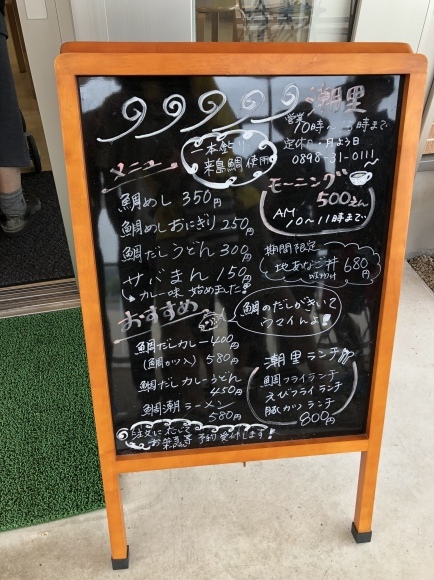 潮里
営業
10時~ 時まで
定休日・月よう日
0898-31-0111
一本釣り
来島鯛使用
メニュー
鯛めし 350円
鯛めしおにぎり 250円
鯛だしうどん 300円
サバまん 150円
カレー味 始めました!!
モーニング
500えん
AM
10~11時まで
期間限定
地あなご丼 680円
おすすめ
鯛のだしがきいて
ウマイんよ!
鯛だしカレー 400円
(鯛カツ入) 580円
鯛だしカレーうどん
450円
鯛潮ラーメン
580円
潮里ランチ
鯛フライランチ
えびフライランチ
豚カツランチ
800円
注文に応じて
お弁当等 予約受付します!